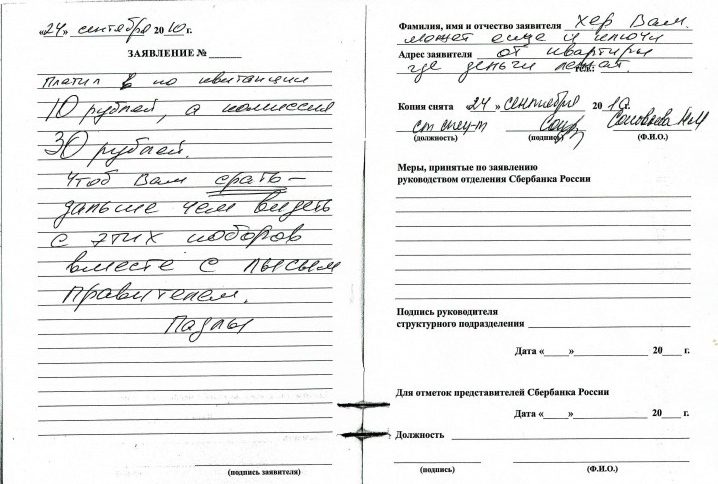 «24» сентября 2010 г.
ЗАЯВЛЕНИЕ №
Платил в по квитанции
10 рублей, а комиссия
30 рублей.
Чтоб Вам срать –
дальше чем видеть
с этих поборов
вместе с лысым
правителем.
Падлы
(подпись заявителя)
Фамилия, имя и отчество заявителя Хер Вам.
может еще и ключи
Адрес заявителя от квартиры
где деньги лежат.
тел.:
Копия снята «24» сентября 2010г.
ст спец-т Соловьева НМ
(должность) (подпись) (Ф.И.О.)
Меры, принятые по заявлению
руководством отделения Сбербанка России
Подпись руководителя
структурного подразделения
Дата « » 20 г.
Для отметок представителей Сбербанка России
Дата « » 20 г.
Должность
(подпись) (Ф.И.О.)